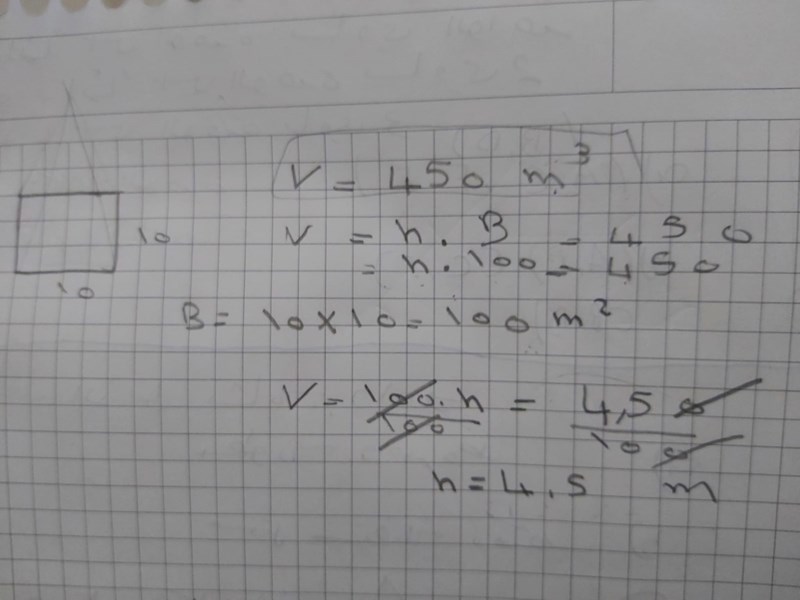 V = 450 m³
10
V = h . B = 450
= h . 100 = 450
10
B = 10 x 10 = 100 m²
V = 100 . h / 100 = 4,50 / 100
h = 4.5 m